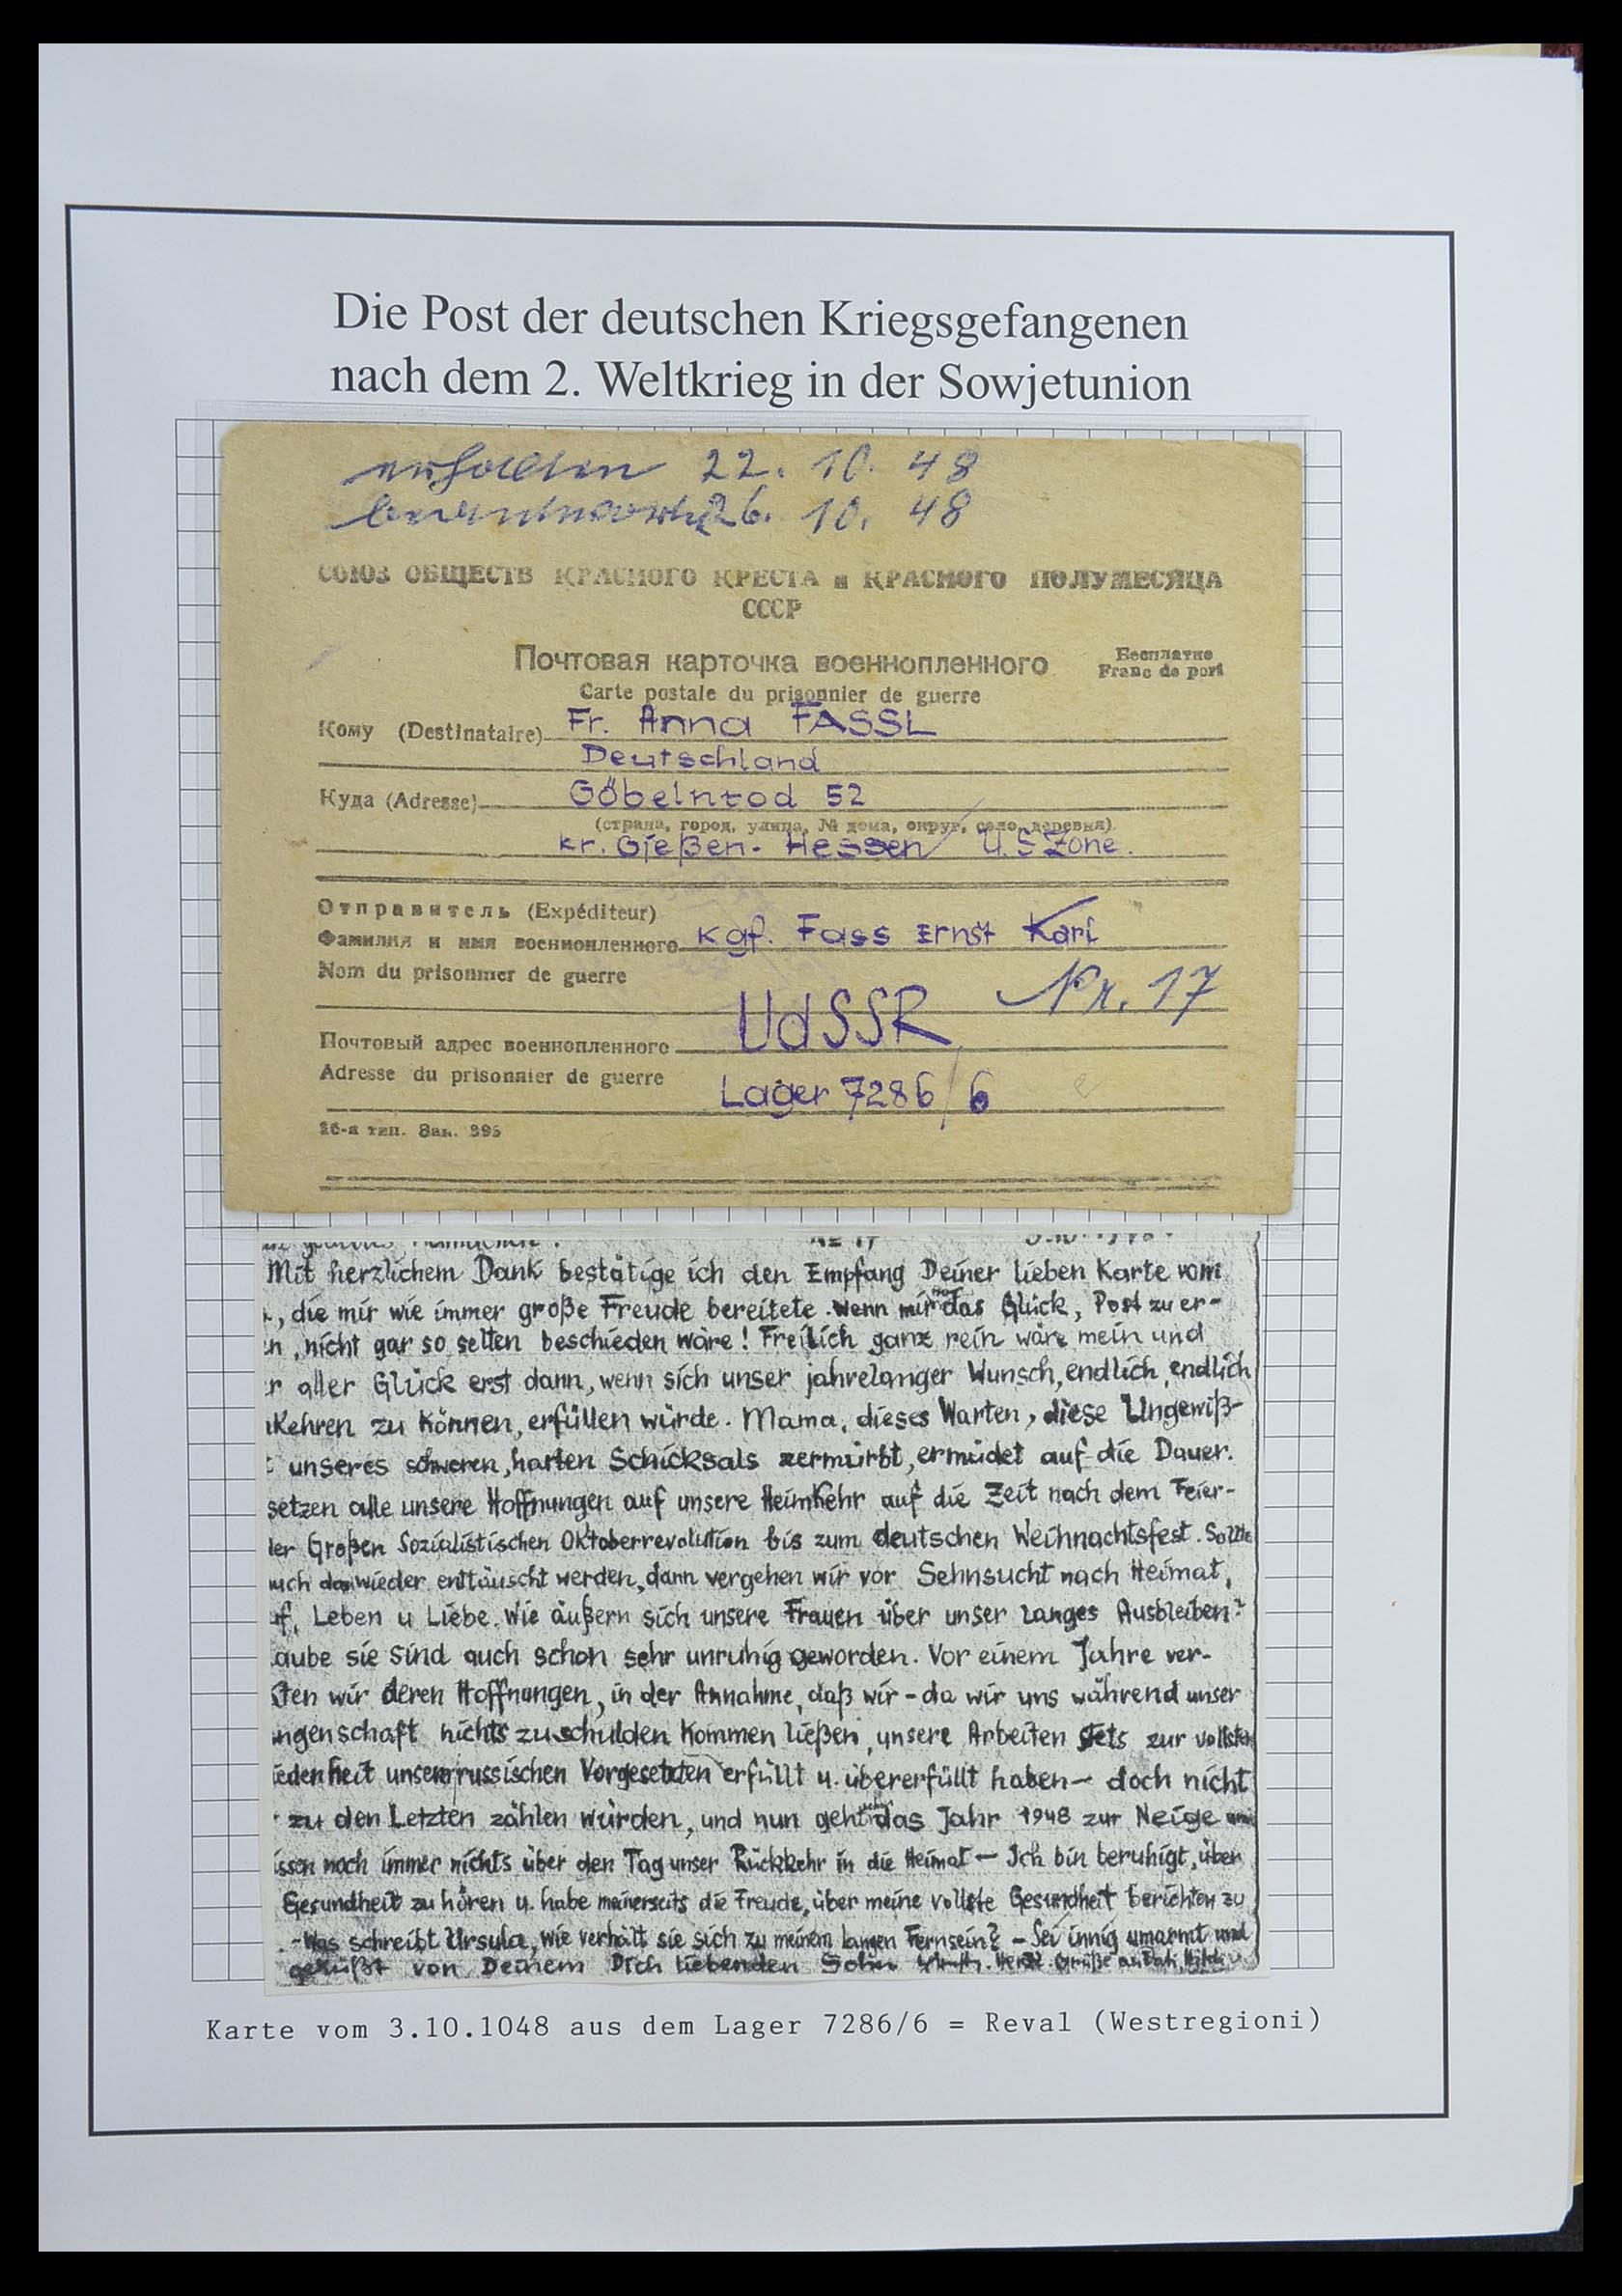 Die Post der deutschen Kriegsgefangenen
nach dem 2. Weltkrieg in der Sowjetunion
erhalten 22. 10. 48
beantwortet 26. 10. 48
СОЮЗ ОБЩЕСТВ КРАСНОГО КРЕСТА и КРАСНОГО ПОЛУМЕСЯЦА
СССР
Почтовая карточка военнопленного
Бесплатно
Franc de port
Carte postale du prisonnier de guerre
Кому (Destinataire) Fr. Anna FASSL
Deutschland
Куда (Adresse) Göbelnrod 52
(страна, город, улица, № дома, округ, село, деревня)
Kr. Gießen - Hessen / U.S Zone.
Отправитель (Expéditeur)
Фамилия и имя военнопленного Kgf. Fass Ernst Karl
Nom du prisonnier de guerre
Nr. 17
UdSSR
Почтовый адрес военнопленного
Adresse du prisonnier de guerre
Lager 7286/6
26-я тип. Зак. 395
Nr 17
Mit herzlichem Dank bestätige ich den Empfang Deiner lieben Karte vom
, die mir wie immer große Freude bereitete. Wenn mir das Glück, Post zu er-
n, nicht gar so selten beschieden wäre! Freilich ganz rein wäre mein und
r aller Glück erst dann, wenn sich unser jahrelanger Wunsch, endlich, endlich
kehren zu können, erfüllen würde. Mama, dieses Warten, diese Ungewiß-
t unseres schweren, harten Schicksals zermürbt, ermüdet auf die Dauer.
setzen alle unsere Hoffnungen auf unsere Heimkehr auf die Zeit nach dem Feier-
der Großen Sozialistischen Oktoberrevolution bis zum deutschen Weihnachtsfest. Sollte
uch wieder enttäuscht werden, dann vergehen wir vor Sehnsucht nach Heimat,
uf, Leben u Liebe. Wie äußern sich unsere Frauen über unser langes Ausbleiben?
aube sie sind auch schon sehr unruhig geworden. Vor einem Jahre ver-
ten wir deren Hoffnungen, in der Annahme, daß wir - da wir uns während unser
ngenschaft nichts zuschulden kommen ließen, unsere Arbeiten stets zur vollsten
iedenheit unserer russischen Vorgesetzten erfüllt u. übererfüllt haben - doch nicht
zu den Letzten zählen würden, und nun geht das Jahr 1948 zur Neige
issen noch immer nichts über den Tag unser Rückkehr in die Heimat - Ich bin beruhigt, über
Gesundheit zu hören u. habe meinerseits die Freude, über meine vollste Gesundheit berichten zu
- Was schreibt Ursula, wie verhält sie sich zu meinem langen Fernsein? - Sei innig umarmt und
geküßt von Deinem Dich liebenden Sohn Herzl. Grüße
Karte vom 3.10.1048 aus dem Lager 7286/6 = Reval (Westregioni)